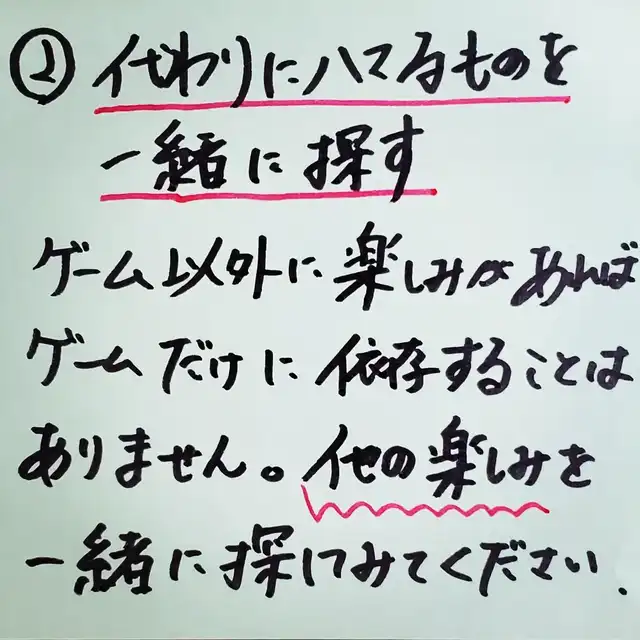 ② 代わりにハマるものを
一緒に探す
ゲーム以外に楽しみがあれば
ゲームだけに依存することは
ありません。他の楽しみを
一緒に探してみてください.